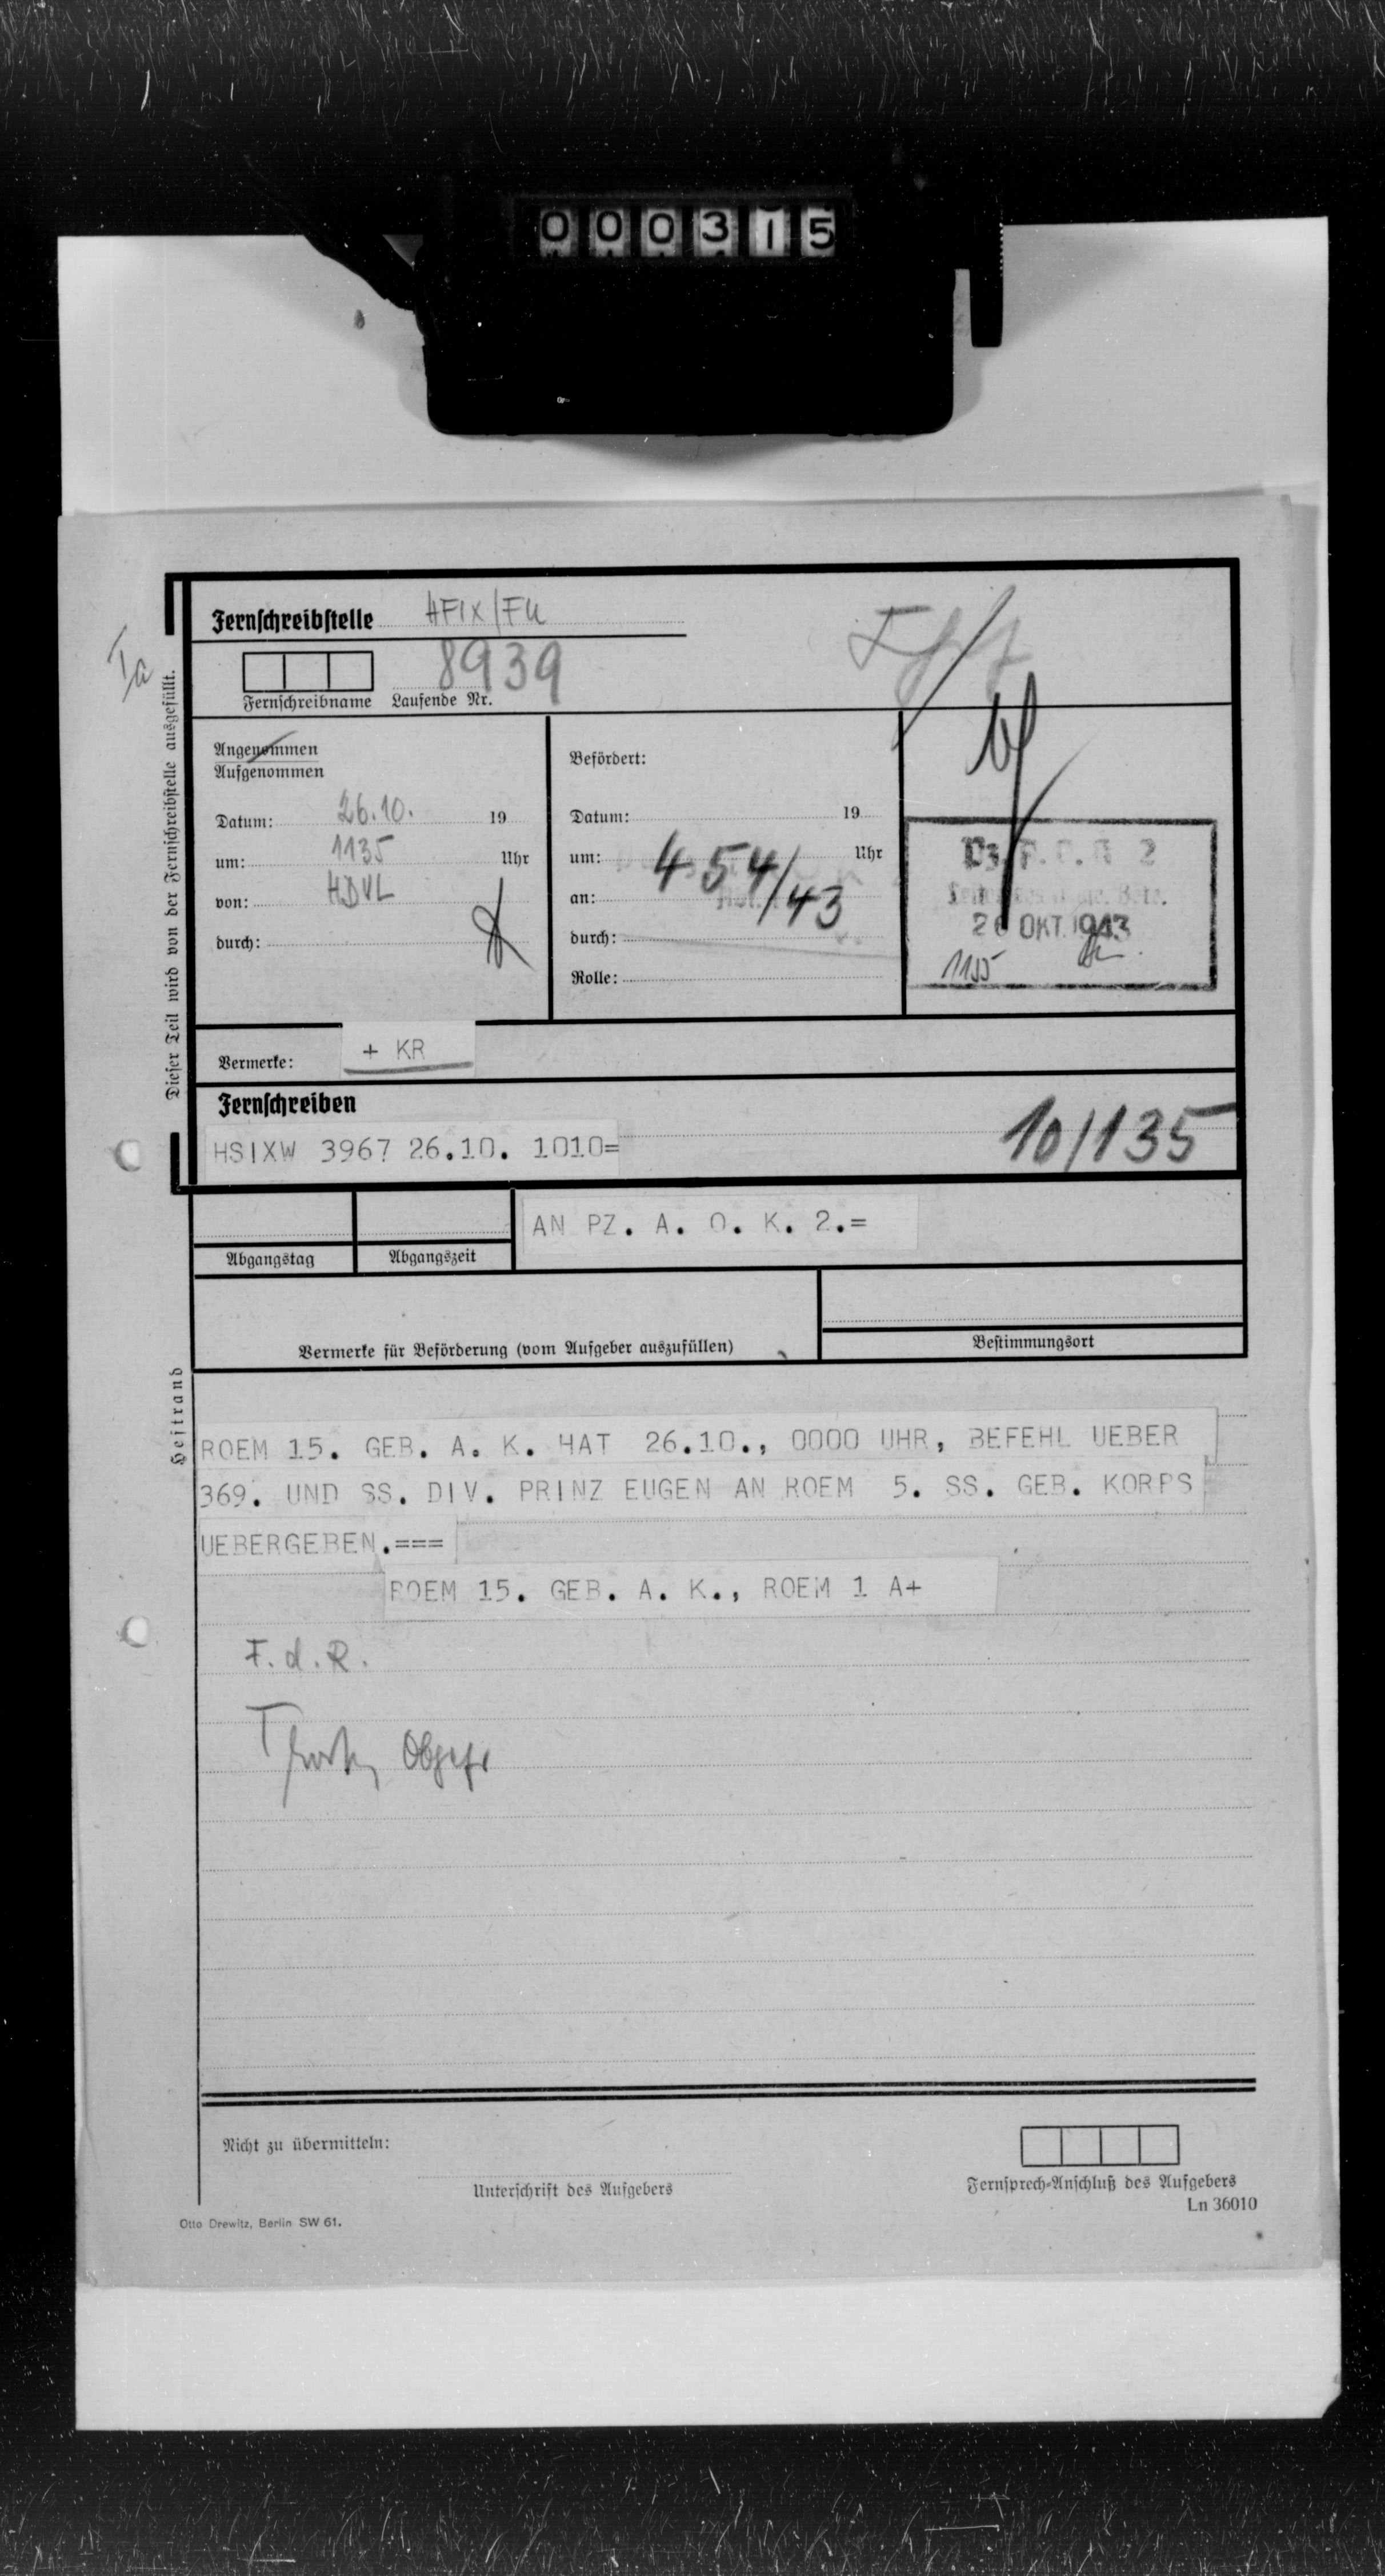 000315
Fernschreibstelle HFIX/FU
8939
Fernschreibname Laufende Nr.
Ia
Dieser Teil wird von der Fernschreibstelle ausgefüllt.
Angenommen
Aufgenommen
Datum: 26.10. 19
um: 1135 Uhr
von: HDVL
durch:
Befördert:
Datum: 19
um: Uhr
an:
durch:
Rolle:
454/43
2
26 OKT. 1943
1155
Vermerke: + KR
Fernschreiben
HSIXW 3967 26.10. 1010=
10/135
AN PZ. A. O. K. 2.=
Abgangstag Abgangszeit
Vermerke für Beförderung (vom Aufgeber auszufüllen)
Bestimmungsort
Heftrand
ROEM 15. GEB. A. K. HAT 26.10., 0000 UHR, BEFEHL UEBER
369. UND SS. DIV. PRINZ EUGEN AN ROEM 5. SS. GEB. KORPS
UEBERGEBEN.===
ROEM 15. GEB. A. K., ROEM 1 A+
F.d.R.
Obgefr
Nicht zu übermitteln:
Unterschrift des Aufgebers
Fernsprech-Anschluß des Aufgebers
Ln 36010
Otto Drewitz, Berlin SW 61.